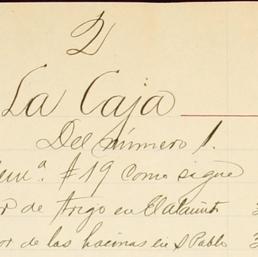 2
La Caja
Del número 1.
# 19 como sigue
de trigo en
or de las hacinas en S Pablo 3